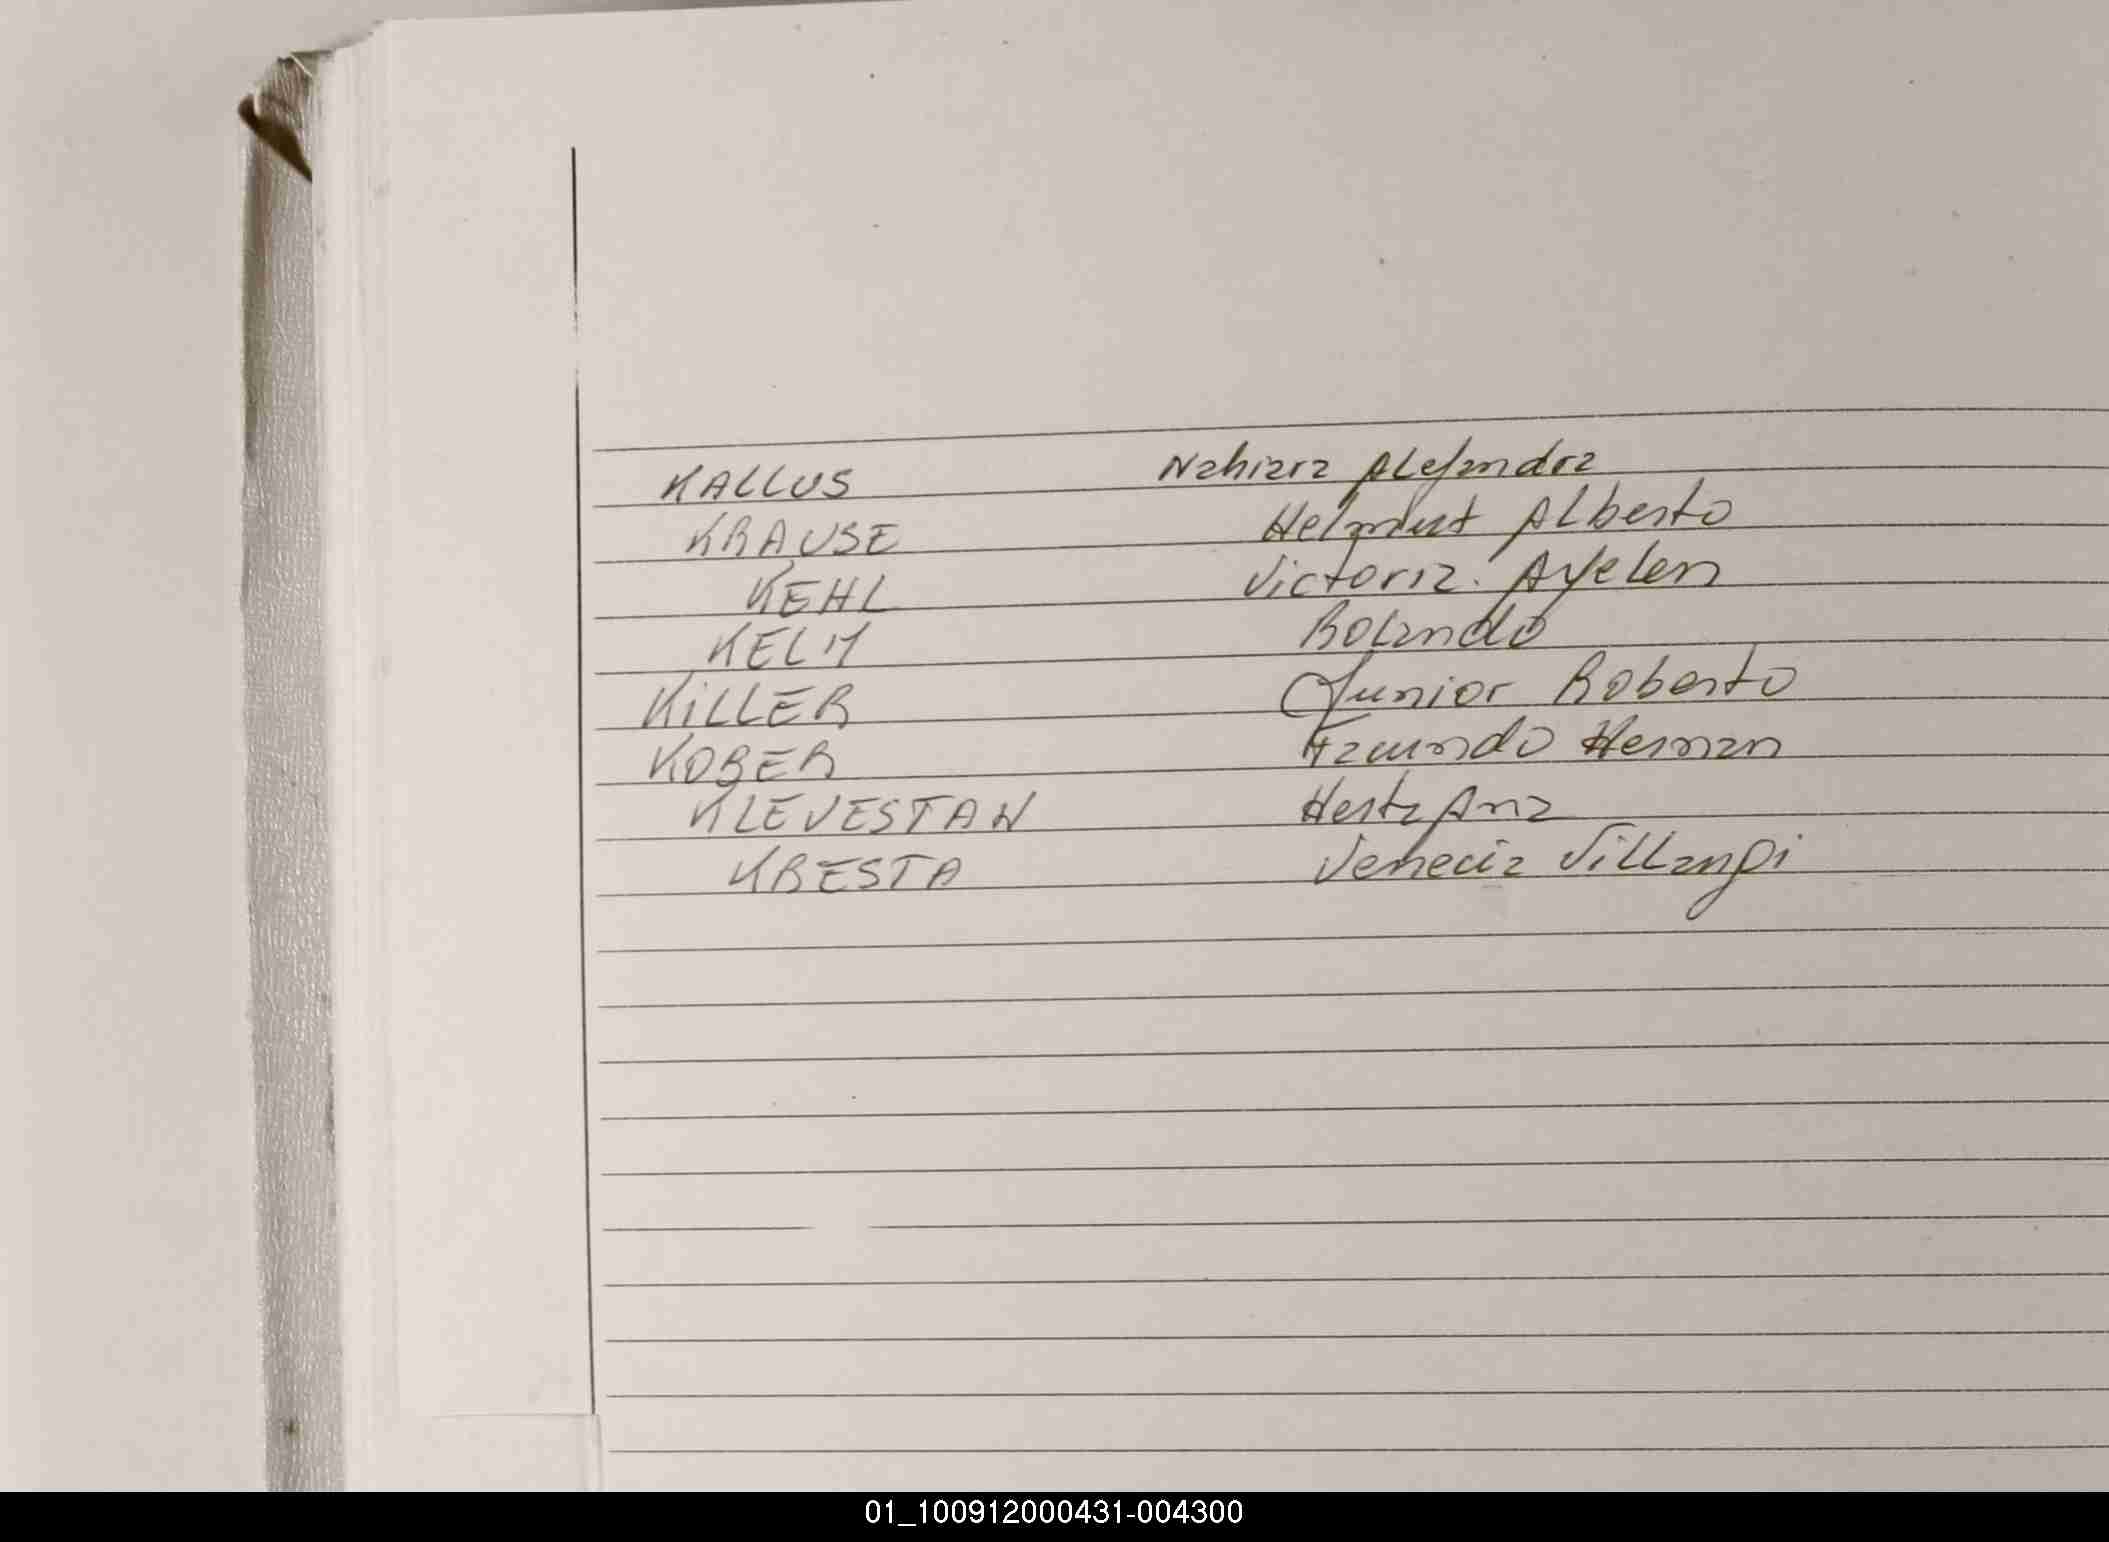 KALLUS Nahiara Alejandra
KRAUSE Helmut Alberto
KEHL Victoria. Ayelen
KELM Rolando
KiLLER Junior Roberto
KOBER Facundo Hernan
KLEVESTAN Herta Ana
KRESTA Venecia Villangi
01_100912000431-004300